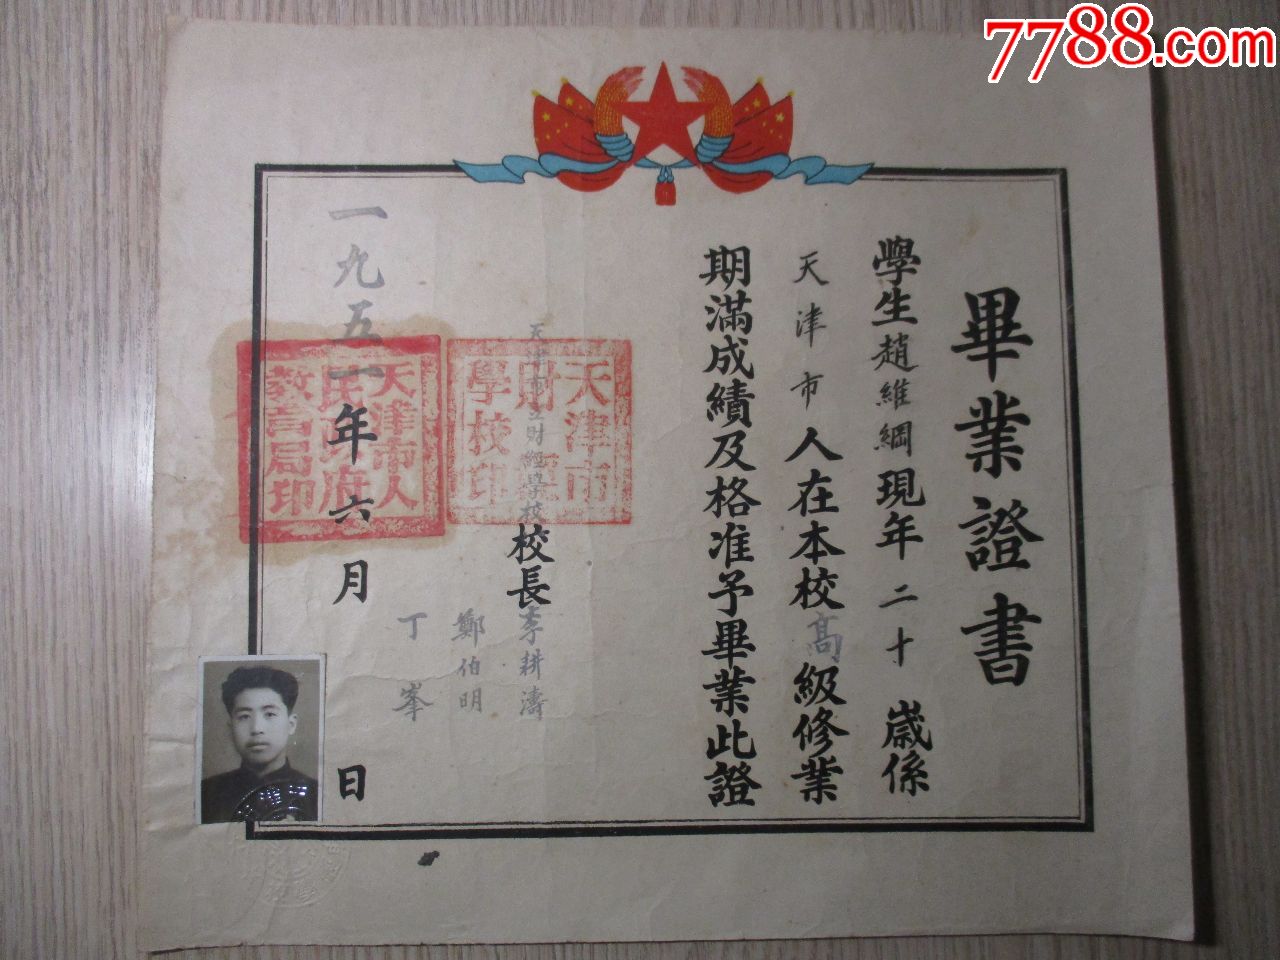 7788.com
畢業證書
學生趙維綱現年二十歲係
天津市人在本校高級修業
期滿成績及格准予畢業此證
天津市立財經學校校長李耕濤
鄭伯明
丁峯
一九五一年六月日
天津市
財
學校印
天津市人
民政府
教育局印